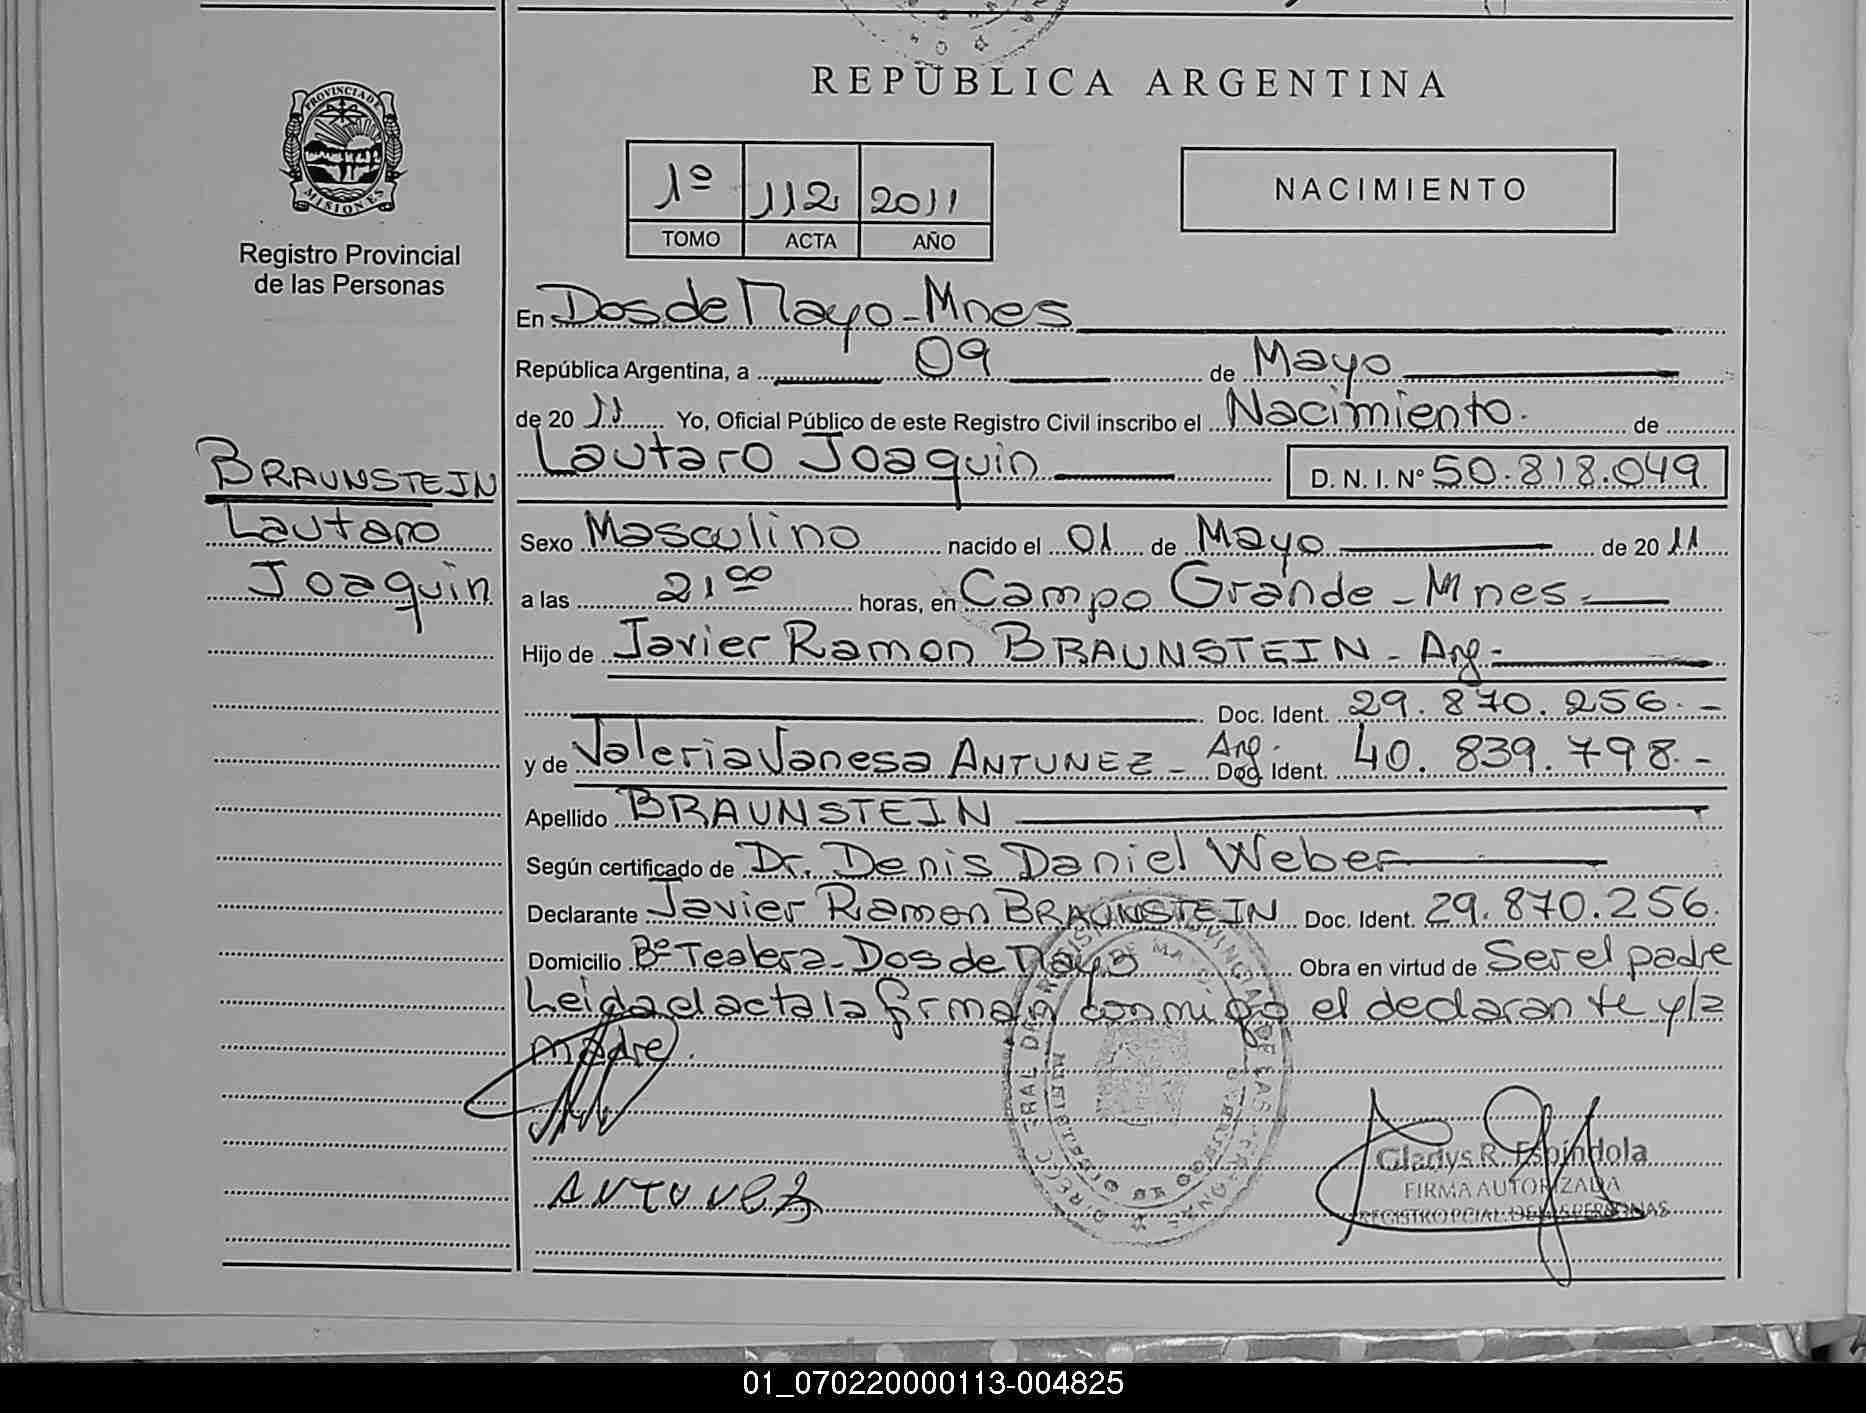 REPÚBLICA ARGENTINA
PROVINCIA DE
MISIONES
Registro Provincial
de las Personas
1º 112 2011
TOMO ACTA AÑO
NACIMIENTO
En Dos de Mayo - Mnes
República Argentina, a 09 de Mayo
de 20 11 Yo, Oficial Público de este Registro Civil inscribo el Nacimiento. de
Lautaro Joaquin D. N. I. Nº 50.818.049.
BRAUNSTEIN
Lautaro
Joaquin
Sexo Masculino nacido el 01 de Mayo de 20 11
a las 21ºº horas, en Campo Grande - Mnes.
Hijo de Javier Ramon BRAUNSTEIN - Arg -
Doc. Ident. 29.870.256.-
y de Valeria Vanesa ANTUNEZ - Arg. Doc. Ident. 40.839.798.-
Apellido BRAUNSTEIN
Según certificado de Dr. Denis Daniel Weber
Declarante Javier Ramon BRAUNSTEIN Doc. Ident. 29.870.256.
Domicilio Bº Tealera - Dos de Mayo Obra en virtud de Ser el padre
Leida el acta la firman conmigo el declarante y la
madre.
ANTUNEZ
Gladys R. Espíndola
FIRMA AUTORIZADA
REGISTRO PCIAL. DE LAS PERSONAS
01_070220000113-004825